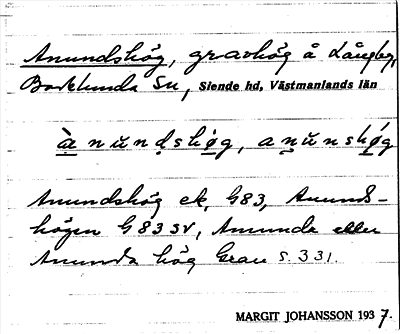 Anundshög, gravhög å Långby,
Badelunda Sn, Siende hd, Västmanlands län
à nŭndshø̣g, anŭnshǿg
Anundshög ek, G83, Anunds-
högen G83 SV, Anunda eller
Anunda hög Grau s. 331.
MARGIT JOHANSSON 1937.